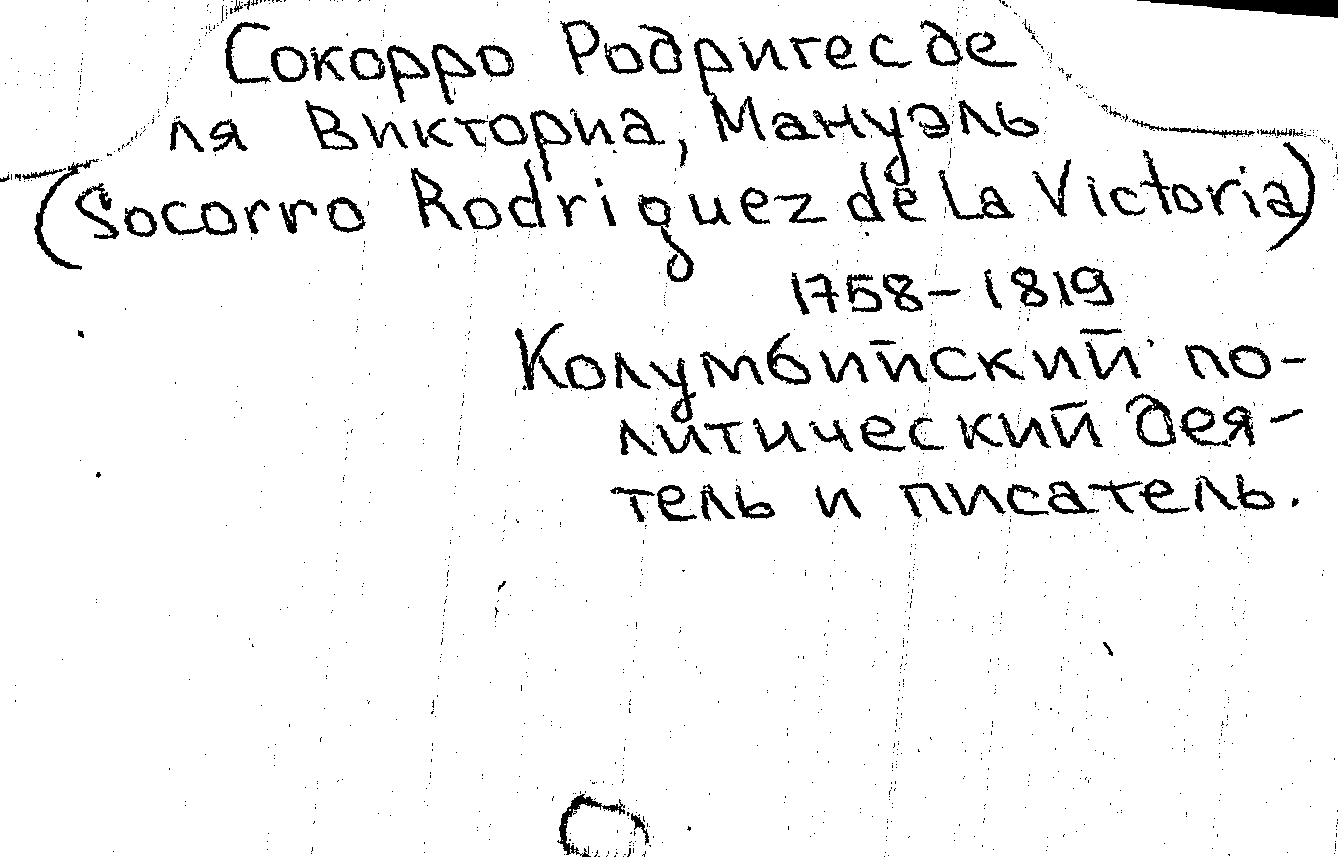 Сокорро Родригес де
ля Викториа, Мануэль
(Socorro Rodriguez de La Victoria)
1758-1819
Колумбийский по-
литический дея-
тель и писатель.